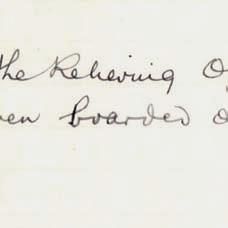 the Relieving O
en boarded o